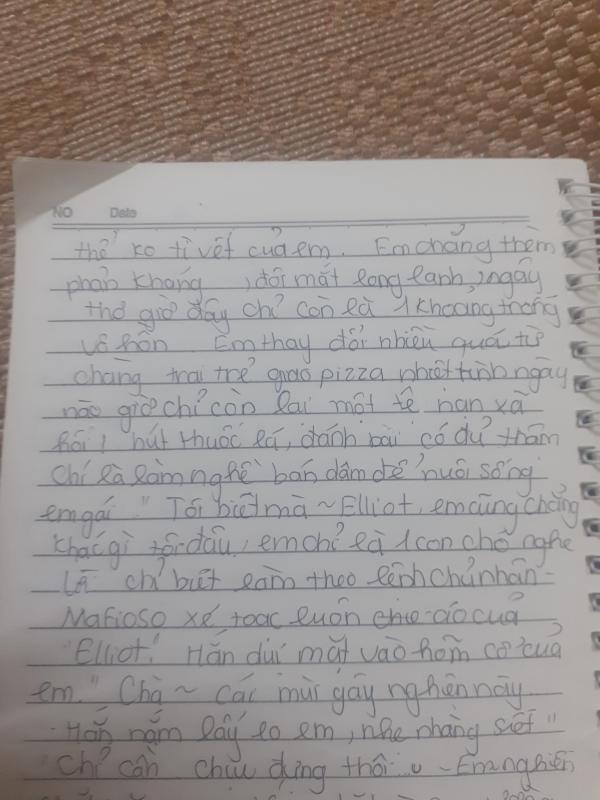 NO Date
thể ko tì vết của em. Em chẳng thèm
phản kháng, đôi mắt long lanh, ngây
thơ giờ đây chỉ còn là 1 khoảng trống
vô hồn Em thay đổi nhiều quá từ
chàng trai trẻ giao pizza nhiệt tình ngày
nào giờ chỉ còn lại một tệ nạn xã
hội! hút thuốc lá, đánh bài có đủ thậm
chí là làm nghề bán dâm để nuôi sống
em gái "Tôi biết mà ~ Elliot, em cũng chẳng
khác gì tôi đâu, em chỉ là 1 con chó nghe
lời chỉ biết làm theo lệnh chủ nhân -
Mafioso xé toạc luôn áo của
"Elliot." Hắn dúi mặt vào hõm cổ của
em. "Chà ~ các mùi gây nghiện này
Hắn nắm lấy eo em, nhẹ nhàng siết "
Chỉ cần chịu đựng thôi ~ Em nghiện